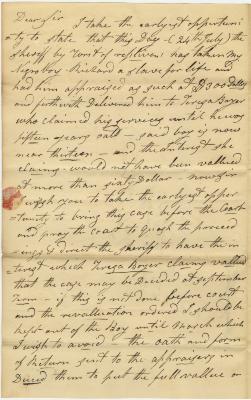 Dear Sir
I take the earlyest opportuni-
ty to state that this Day (24th July) the
sheriff by writ of replivin has taken my
Negro boy Richard a slave for life and
had him appraised as such at $300 Dollars
and forthwith Delivered him to Teresa Boyer
who claimed his services untill he was
fifteen years oald - said boy is now
near thirteen - and the interest she
claims would not have been vallued
at more than sixty Dollar - now sir
I wish you to take the earlyest oppor
tunity to bring this case before the Coart
and pray the coart to quash the proceed
ings & direct the sheriff to have the in
terest which Teresa Boyer claims vallued
that the case may be Decided at september
term - if this is not done before court
and the revalluation ordered I should be
kept out of the Boy untill March which
I wish to avoid - the oath and form
of return sent to the appraisers in
Duced them to put the full vallue on